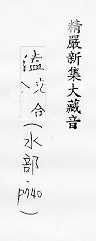 精嚴新集大藏音
溘合(水部.p740)